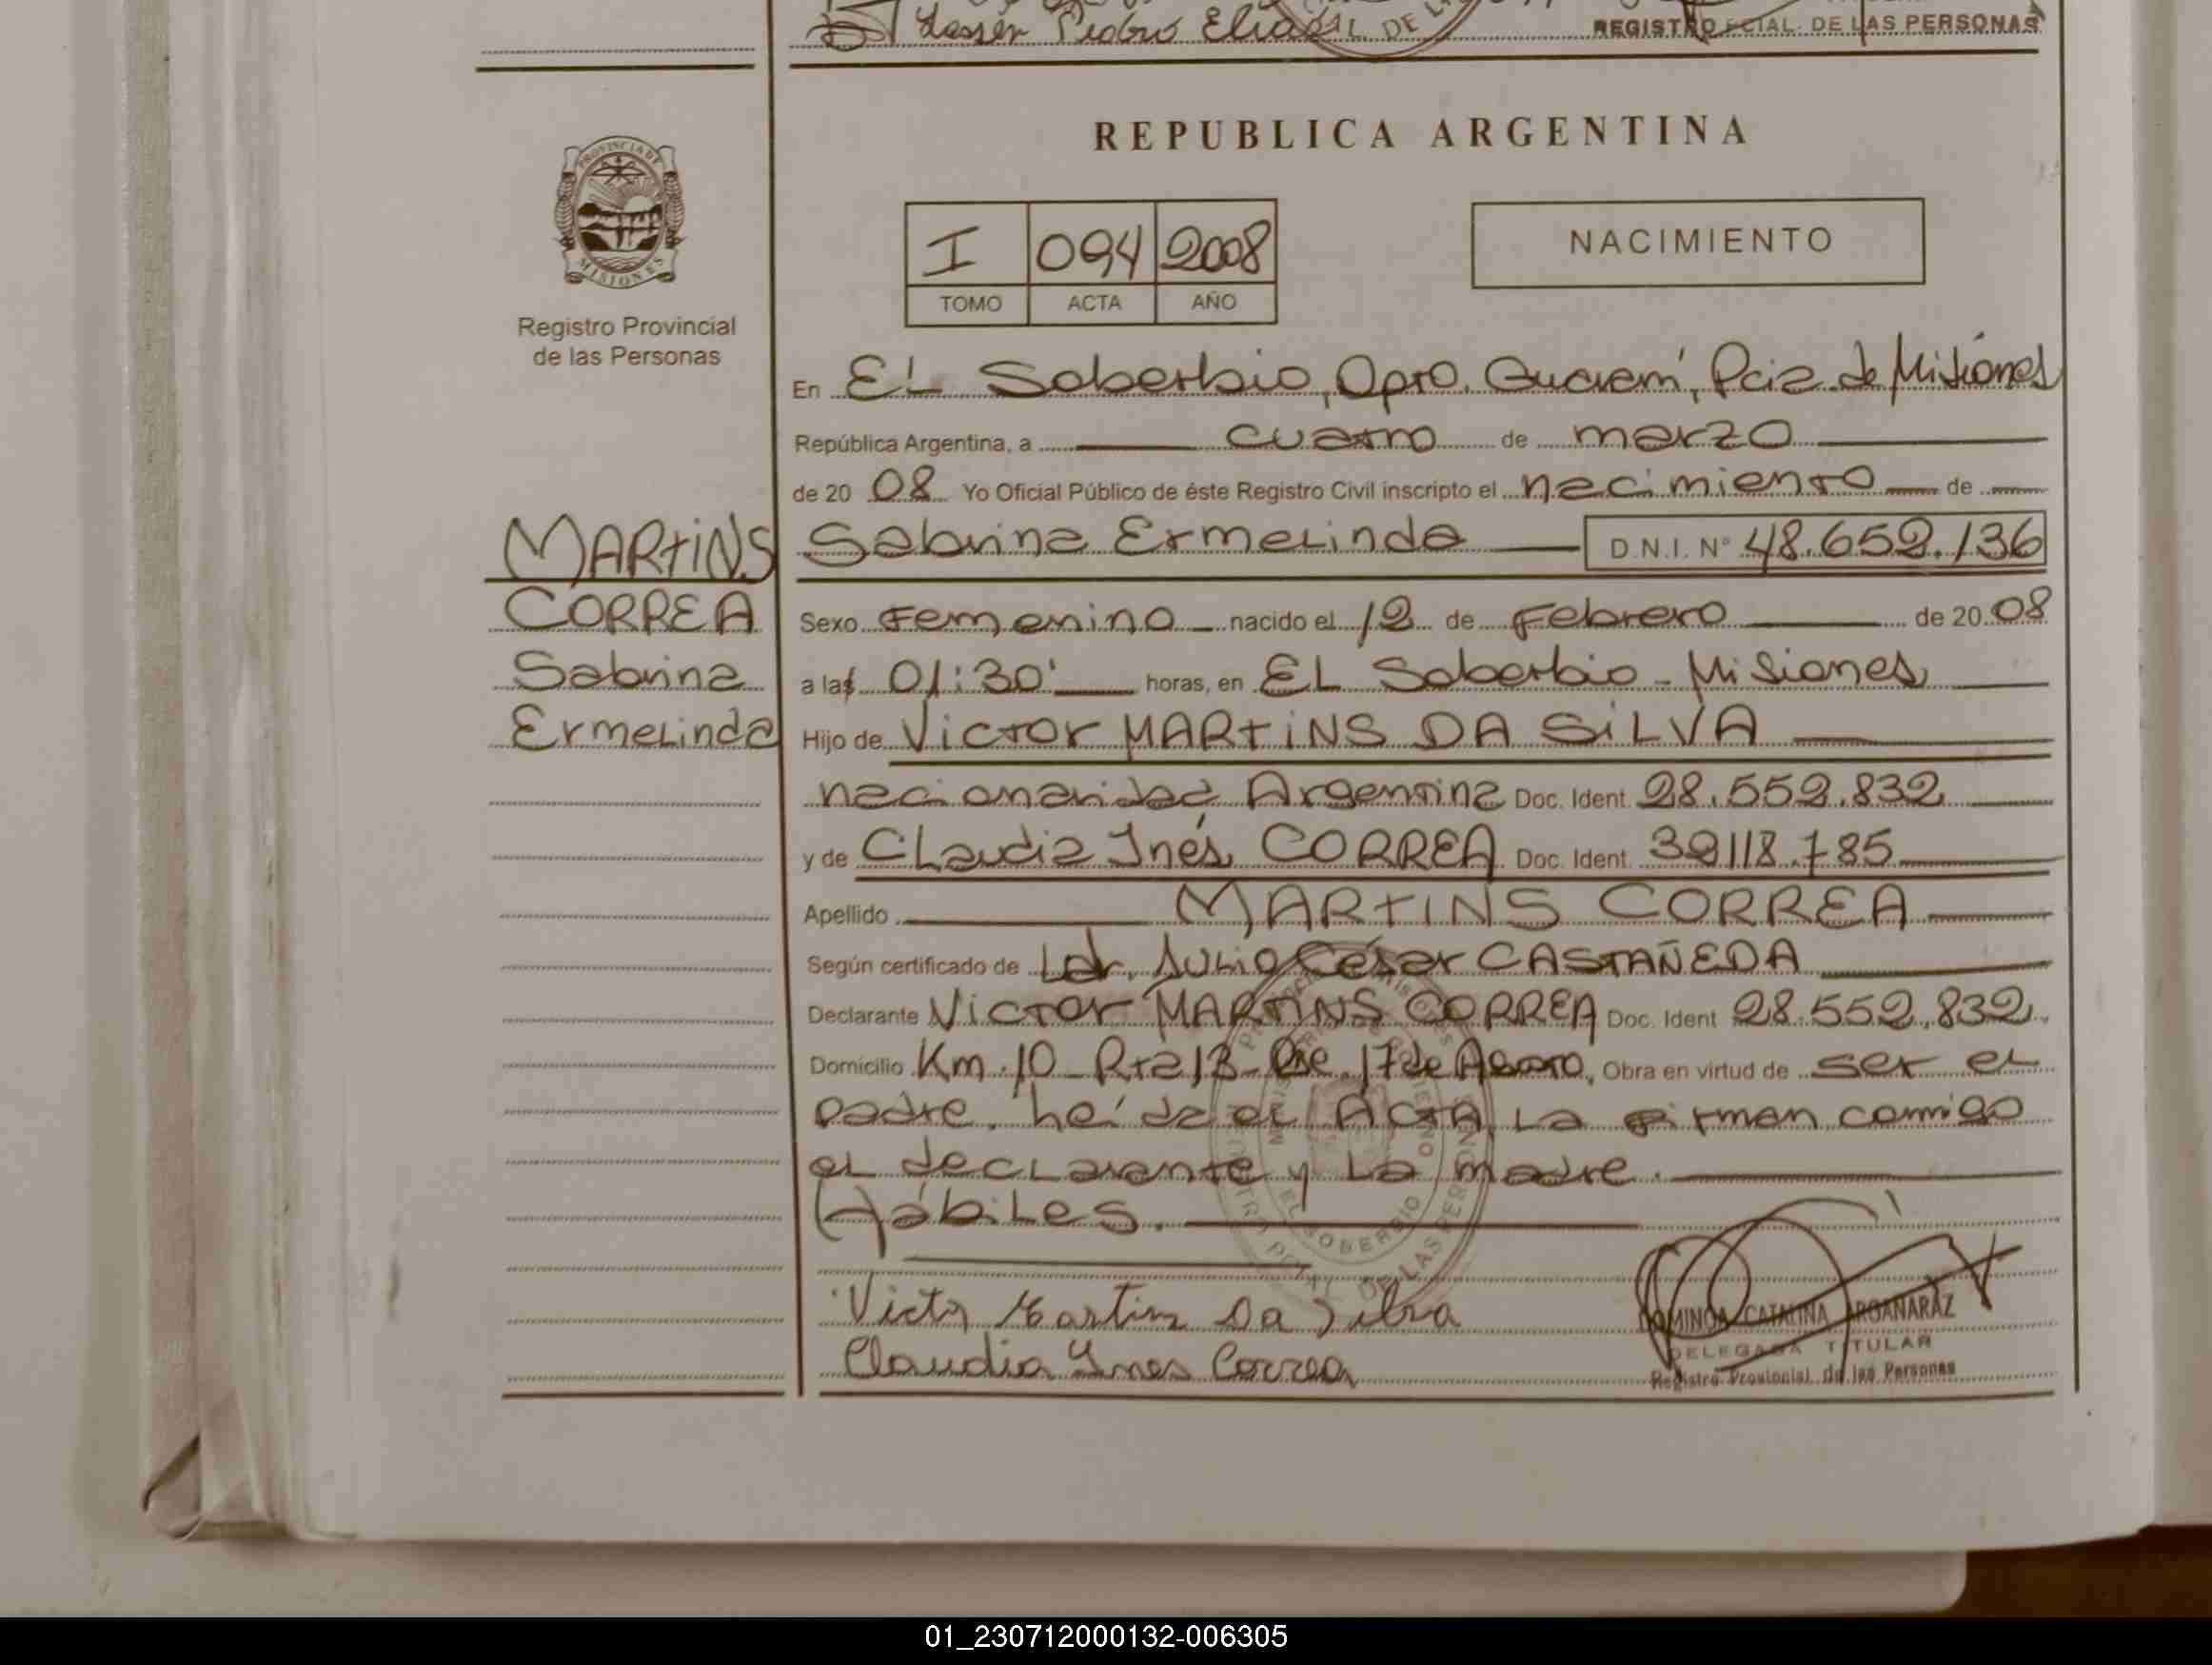 Lasser Pedro Elias
REGISTRO PCIAL. DE LAS PERSONAS
REPUBLICA ARGENTINA
PROVINCIA DE MISIONES
Registro Provincial
de las Personas
I 094 2008
TOMO ACTA AÑO
NACIMIENTO
En EL Soberbio, Dpto. Guaraní, Pcia. de Misiones
República Argentina, a cuatro de marzo
de 20 08 Yo Oficial Público de éste Registro Civil inscripto el nacimiento de
MARTINS
CORREA
Sabrina
Ermelinda
Sabrina Ermelinda D.N.I. Nº 48.652.136
Sexo Femenino nacido el 12 de Febrero de 20 08
a las 01:30' horas, en EL Soberbio - Misiones
Hijo de Victor MARTINS DA SILVA
nacionalidad Argentina Doc. Ident. 28.552.832
y de Claudia Inés CORREA Doc. Ident. 39118.785
Apellido MARTINS CORREA
Según certificado de Julio César CASTAÑEDA
Declarante Victor MARTINS CORREA Doc. Ident 28.552.832.
Domicilio Km. 10 - Rta 13 - 17 de Agosto, Obra en virtud de ser el
padre. heída el ACTA La firman comigo
el declarante y La madre.
Hábiles.
EL SOBERBIO
Victor Martins Da Silva
Claudia Ines Correa
DOMINGA CATALINA ARGAÑARAZ
DELEGADA TITULAR
Registro Provincial de las Personas
01_230712000132-006305